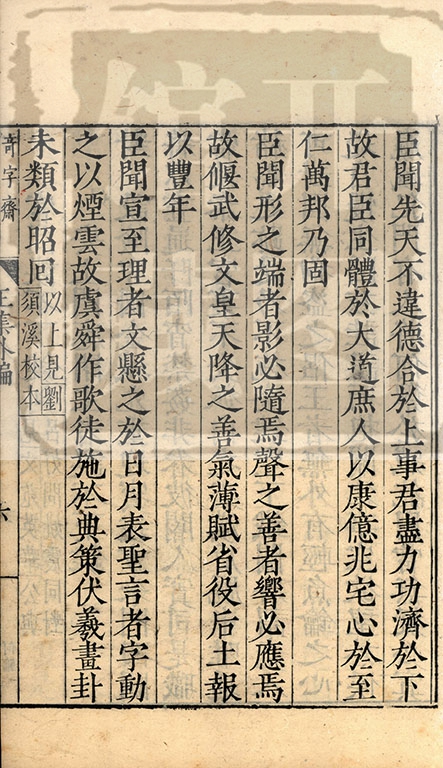 臣聞先天不違德合於上事君盡力功濟於下
故君臣同體於大道庶人以康億兆宅心於至
仁萬邦乃固
臣聞形之端者影必隨焉聲之善者響必應焉
故偃武修文皇天降之善氣薄賦省役后土報
以豐年
臣聞宣至理者文懸之於日月表聖言者字動
之以煙雲故虞舜作歌徒施於典策伏羲畫卦
未類於昭回以上見劉須溪校本
奇字齋 王集外編 六